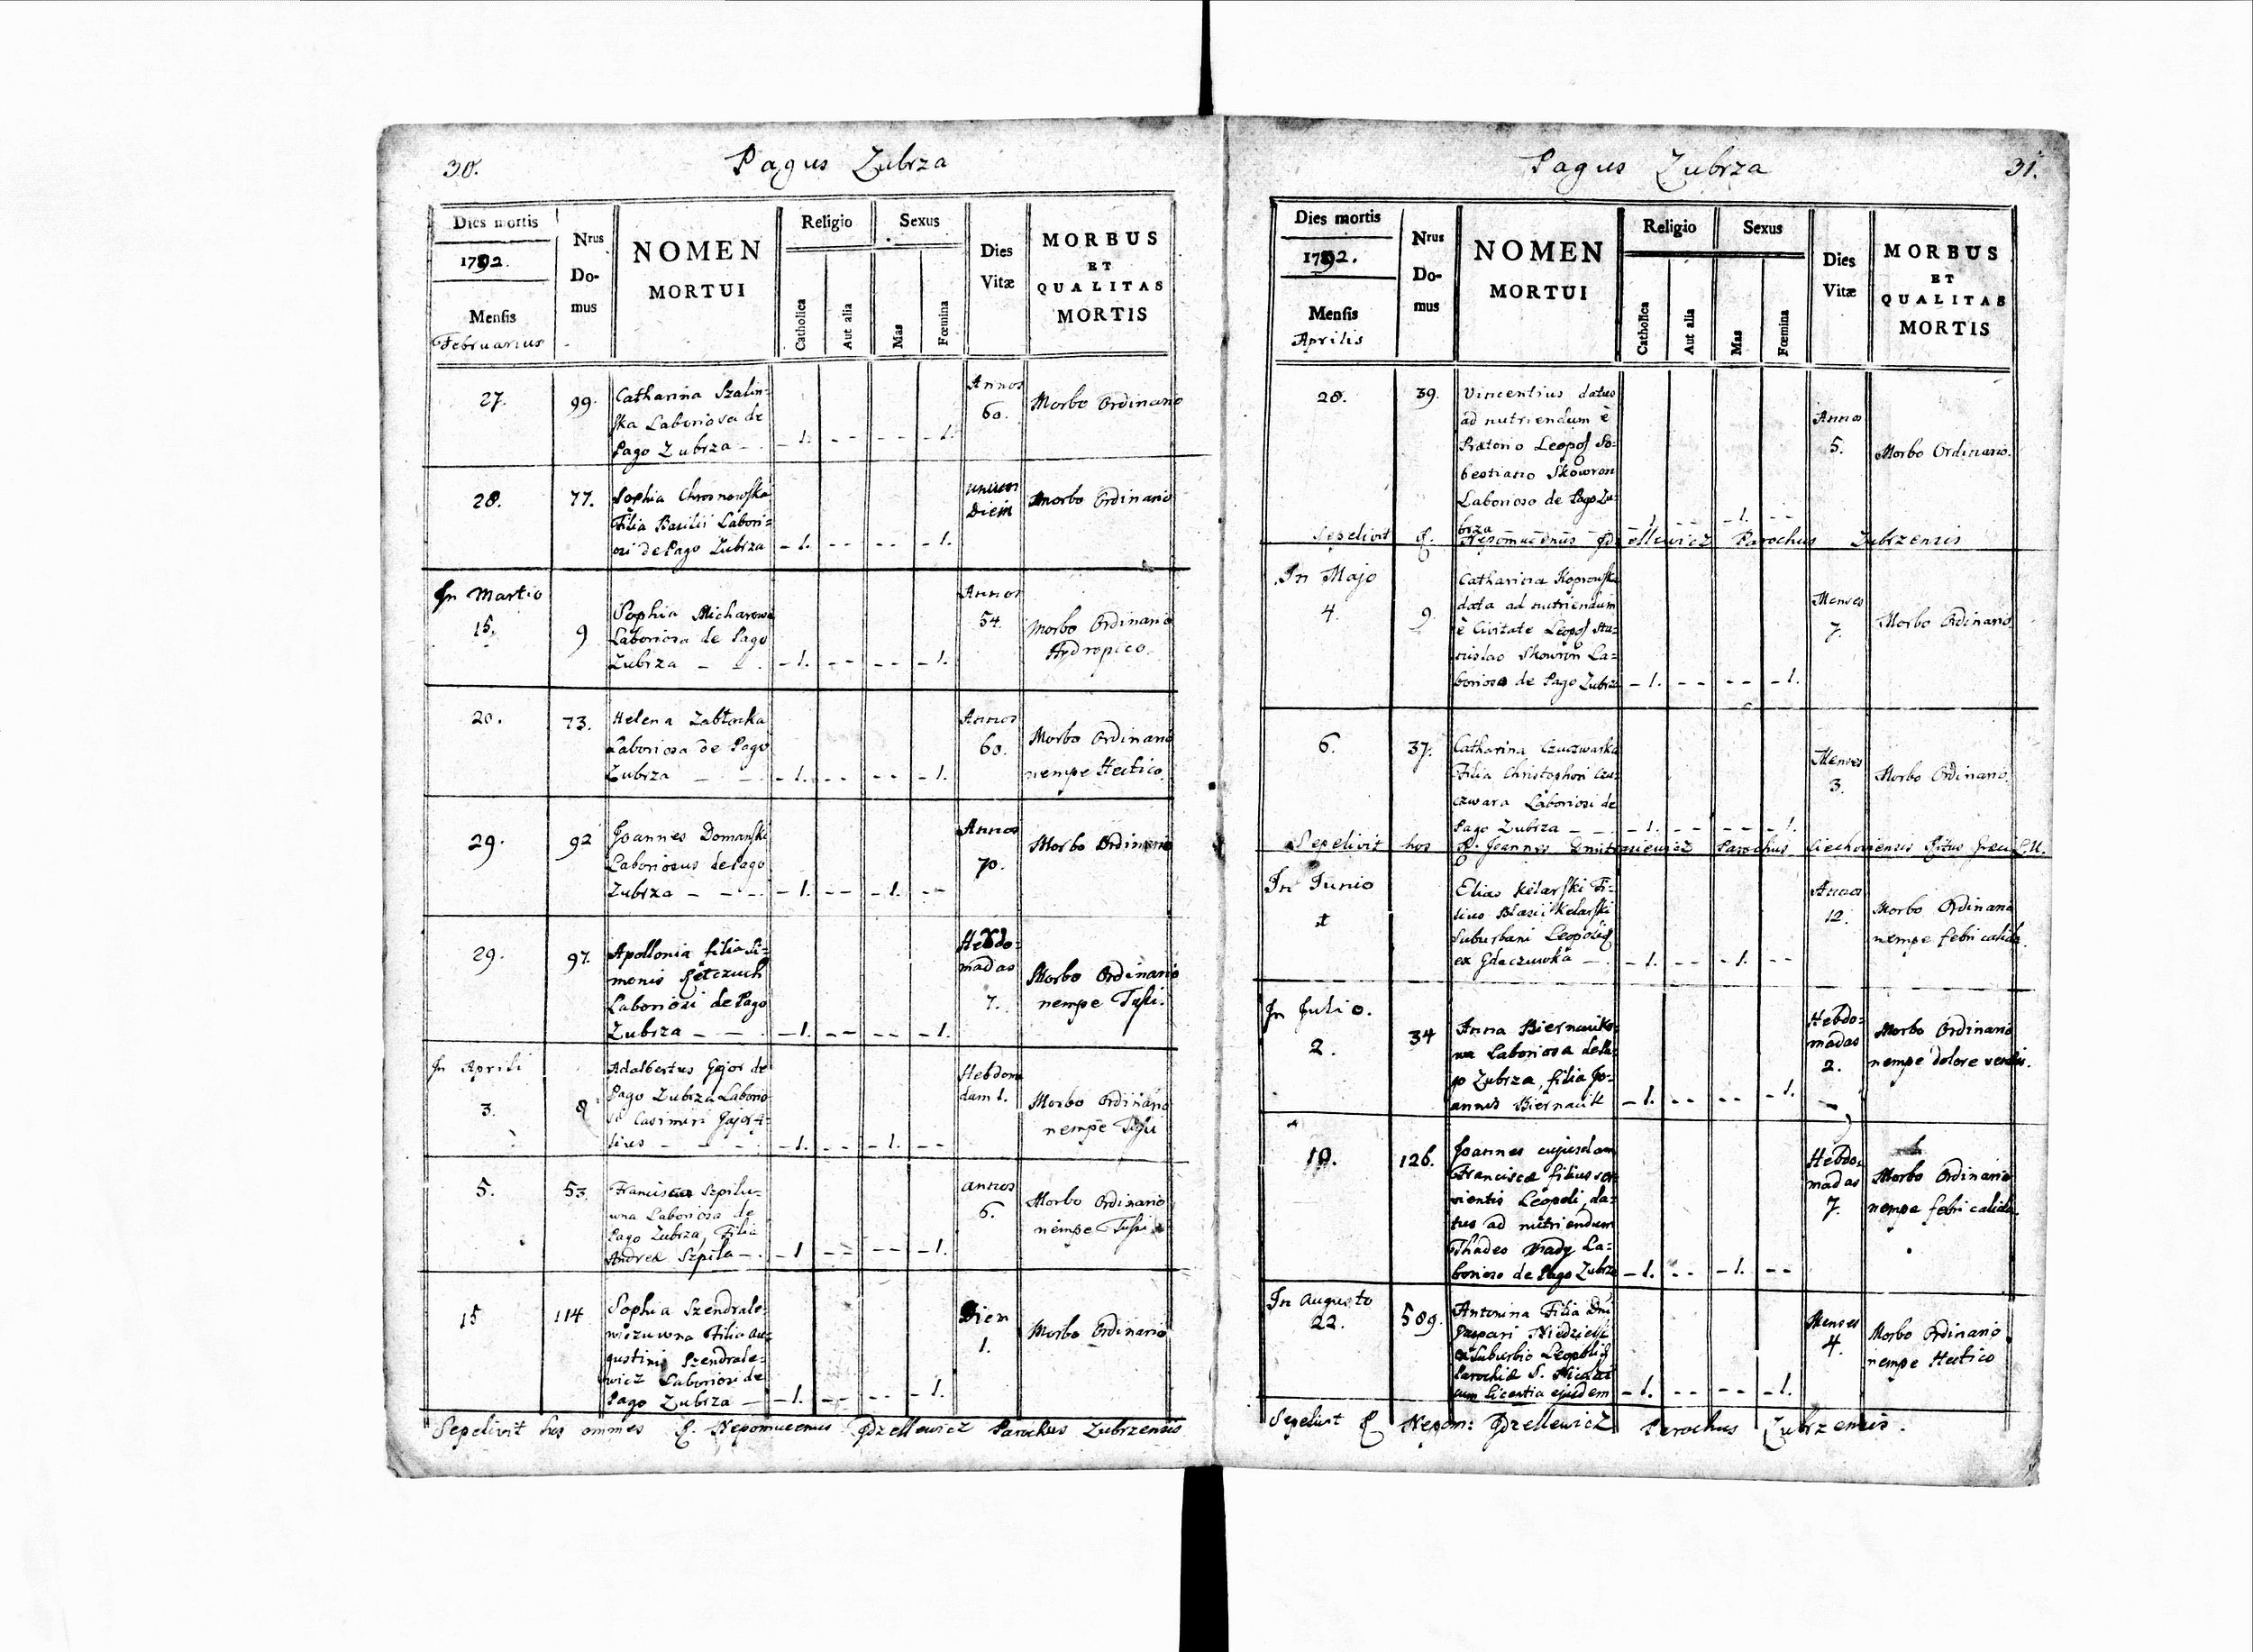 30.
Pagus Zubrza
Dies mortis
1792.
Mensis
Februarius
Nrus Domus
NOMEN MORTUI
Religio
Catholica
Aut alia
Sexus
Mas
Fœmina
Dies Vitæ
MORBUS ET QUALITAS MORTIS
27. 99. Catharina Szalin- Annos Morbo Ordinario
ska Laboriosa de 60.
Pago Zubrza - 1. - - - - - 1.
28. 77. Sophia Chronowska unum Morbo Ordinario
Filia Basilii Labori= Diem
osi de Pago Zubrza - 1. - - - - - 1.
In Martio Annos
15. 9 Sophia Micharowa 54. Morbo Ordinario
Laboriosa de Pago Hydropico.
Zubrza - - 1. - - - - - 1.
20. 73. Helena Zabłocka Annos Morbo Ordinario
Laboriosa de Pago 60. nempe Hectico
Zubrza - - - 1. - - - - - 1.
29. 92 Joannes Domanski Annos Morbo Ordinario
Laboriosus de Pago 70.
Zubrza - - - - 1. - - - 1. - -
29. 97. Apollonia filia Si= Hebdo=
monis madas Morbo Ordinario
Laboriosi de Pago 7. nempe Tussi.
Zubrza - - - 1. - - - - - 1.
In Aprili Adalbertus Gajor de Hebdom
3. 8 Pago Zubrza Laborio dam 1. Morbo Ordinario
si Casimiri Gajor fi= nempe Tussi
lius - - - - 1. - - - 1. - -
5. 53. Szpilu= annos Morbo Ordinario
wna Laboriosa de 6. nempe Tussi
Pago Zubrza, Filia
Andreæ Szpila - - 1 - - - - - 1.
15 114 Sophia Szendrale= Diem
wiczuwna Filia Au= 1. Morbo Ordinario
gustini Szendrale=
wicz Laboriosi de
Pago Zubrza - - 1. - - - - 1.
Sepelivit hos omnes Nepomucenus Parochus Zubrzensis
Pagus Zubrza
31.
Dies mortis
1792.
Mensis
Aprilis
Nrus Domus
NOMEN MORTUI
Religio
Catholica
Aut alia
Sexus
Mas
Fœmina
Dies Vitæ
MORBUS ET QUALITAS MORTIS
28. 39. Vincentius datus
ad nutriendum è Annos
Prætorio Leopol 5. Morbo Ordinario.
bestiano Skowron
Laborioso de Pago Zu=
brza 1 - - - 1. - -
Sepelivit Parochus Zubrzensis
In Majo Catharina Koprowska
4. 9. data ad nutriendum Menses Morbo Ordinario
è Civitate Leopol Sta= 7.
nislao Skowron La=
borioso de Pago Zubrza - 1. - - - - - 1.
6. 37. Catharina Czuczwarka Menses
Filia Christophori Czu= 3. Morbo Ordinario.
czwara Laboriosi de
Pago Zubrza - - 1. - - - - - 1.
Sepelivit hos Joannes Parochus Ritus
In Junio Elias Kelarski Fi= Annos
1 lius Blasii Kelarski 12. Morbo Ordinario
Suburbani Leopolis nempe febri calida.
ex - - 1. - - - 1. - -
In Julio. Hebdo=
2. 34 Anna madas Morbo Ordinario
Laboriosa de Pa= 2. nempe dolore ventris.
go Zubrza, filia Jo=
annis Biernacik - 1. - - - - - 1.
10. 126. Joannes cujusdam Hebdo=
Franciscæ filius ser= madas Morbo Ordinario
vientis Leopoli, da= 7. nempe febri calida.
tus ad nutriendum
Thadeo La=
borioso de Pago Zubrza - 1. - - - 1. - -
In Augusto
22. 589. Antonina Filia Dni Menses Morbo Ordinario
Gaspari 4. nempe Hectico
ex Suburbio Leopolis
Parochiæ S. Nicolai
cum Licentia ejusdem - 1. - - - - - 1.
Sepelivit Nepom: Parochus Zubrzensis.